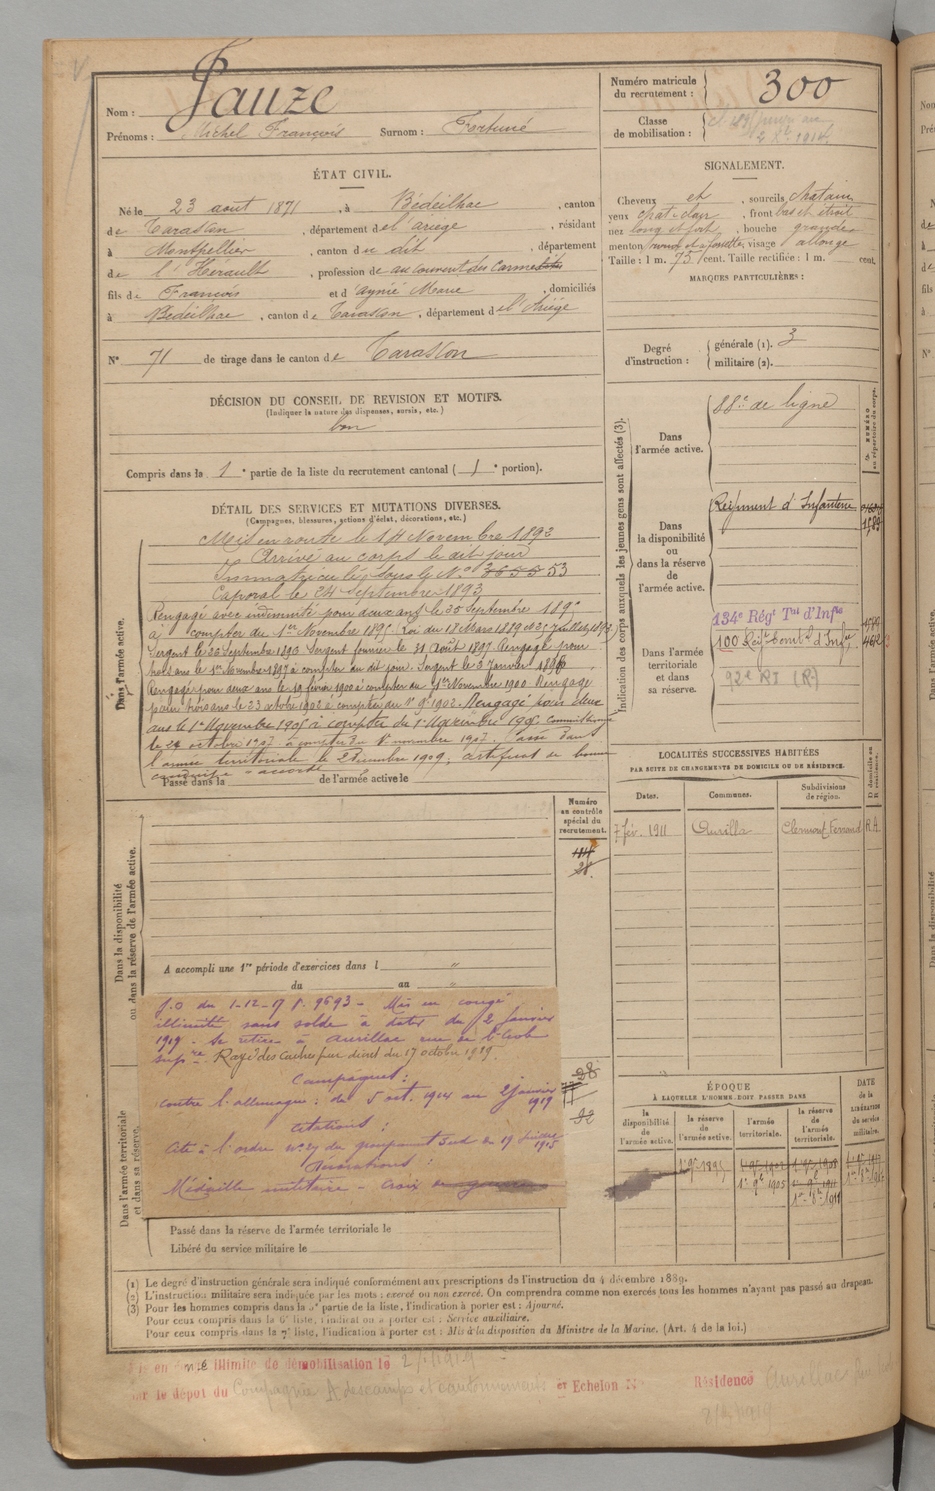 Nom : Fauze
Prénoms : Michel François Surnom : Fortuné
Numéro matricule du recrutement : 300
Classe de mobilisation :
ÉTAT CIVIL.
Né le 23 aout 1871, à Bédeilhac, canton
de Tarascon, département de l'ariège, résidant
à Montpellier, canton du dit, département
de l'Hérault, profession de au couvent des Carmes
fils de François et d'aynié Marie, domiciliés
à Bédeilhac, canton de Tarascon, département de l'Ariège
N° 71 de tirage dans le canton de Tarascon
SIGNALEMENT.
Cheveux et, sourcils chatain
yeux chat-clair, front bas et étroit
nez long et fort, bouche grande
menton rond et à fossette, visage allongé
Taille : 1 m. 75 cent. Taille rectifiée : 1 m. cent.
MARQUES PARTICULIÈRES :
Degré d'instruction : générale (1). 3
militaire (2).
DÉCISION DU CONSEIL DE REVISION ET MOTIFS.
(Indiquer la nature des dispenses, sursis, etc.)
bon
Compris dans la 1e partie de la liste du recrutement cantonal (1e portion).
DÉTAIL DES SERVICES ET MUTATIONS DIVERSES.
(Campagnes, blessures, actions d'éclat, décorations, etc.)
Dans l'armée active.
Mis en route le 14 Novembre 1892
Arrivé au corps le dit jour
Immatriculé sous le N° 3653 53
Caporal le 24 Septembre 1893
Rengagé avec indemnité pour deux ans le 30 Septembre 1895
à compter du 1er Novembre 1895 (Loi du 18 Mars 1889
Sergent fourrier le 31 Août 1897. Rengagé pour
trois ans le 1er Novembre 1897 à compter du dit jour. Sergent le 3 Janvier
Rengagé pour deux ans le 19 février 1900 à compter du 1er Novembre 1900. Rengagé
pour trois ans le 23 octobre 1902 à compter du 1er 9bre 1902. Rengagé pour deux
ans le 1er Novembre 1905 à compter du 1er Novembre 1905. Commissionné
le 24 octobre 1907 à compter du 1er novembre 1907. Passé dans
l'armée territoriale le 2 décembre 1909, certificat de bonne
conduite accordé
Passé dans la de l'armée active le
Indication des corps auxquels les jeunes gens sont affectés (3).
N° NUMÉRO au répertoire du corps.
Dans l'armée active.
88e de ligne
Dans la disponibilité ou dans la réserve de l'armée active.
Régiment d'Infanterie
Dans l'armée territoriale et dans sa réserve.
134e Régt Tal d'Infie
100 Régt territ. d'Infie
92e RI (R)
LOCALITÉS SUCCESSIVES HABITÉES
PAR SUITE DE CHANGEMENTS DE DOMICILE OU DE RÉSIDENCE.
Dates. Communes. Subdivisions de région. D domicile ou R résidence.
7 fév. 1911 Aurillac Clermont Ferrand R.A.
Numéro au contrôle spécial du recrutement.
Dans la disponibilité ou dans la réserve de l'armée active.
A accompli une 1re période d'exercices dans l "
du au "
J.O du 1-12-17 p. 9693 - Mis en congé
illimité sans solde à dater du 2 janvier
1919 - Se retire à Aurillac rue de l'École
supre. Rayé des cadres par décret du 17 octobre 1919.
Campagnes :
contre l'allemagne : du 5 oct. 1914 au 2 janvier 1919
Citations :
Cité à l'ordre n° 27 du groupement Sud du 19 juillet 1915
Décorations :
Médaille militaire - Croix de guerre
28
92
Dans l'armée territoriale et dans sa réserve.
Passé dans la réserve de l'armée territoriale le
Libéré du service militaire le
ÉPOQUE
À LAQUELLE L'HOMME DOIT PASSER DANS
la disponibilité de l'armée active. la réserve de l'armée active. l'armée territoriale. la réserve de l'armée territoriale. DATE de la LIBÉRATION du service militaire.
1er 9bre 1895 1er 9bre 1905
(1) Le degré d'instruction générale sera indiqué conformément aux prescriptions de l'instruction du 4 décembre 1889.
(2) L'instruction militaire sera indiquée par les mots : exercé ou non exercé. On comprendra comme non exercés tous les hommes n'ayant pas passé au drapeau.
(3) Pour les hommes compris dans la 5e partie de la liste, l'indication à porter est : Ajourné.
Pour ceux compris dans la 6e liste, l'indication à porter est : Service auxiliaire.
Pour ceux compris dans la 7e liste, l'indication à porter est : Mis à la disposition du Ministre de la Marine. (Art. 4 de la loi.)
Mis en congé illimité de démobilisation le 2/1/1919
par le dépôt du Compagnie A des camps et cantonnements er Echelon N° Résidence Aurillac